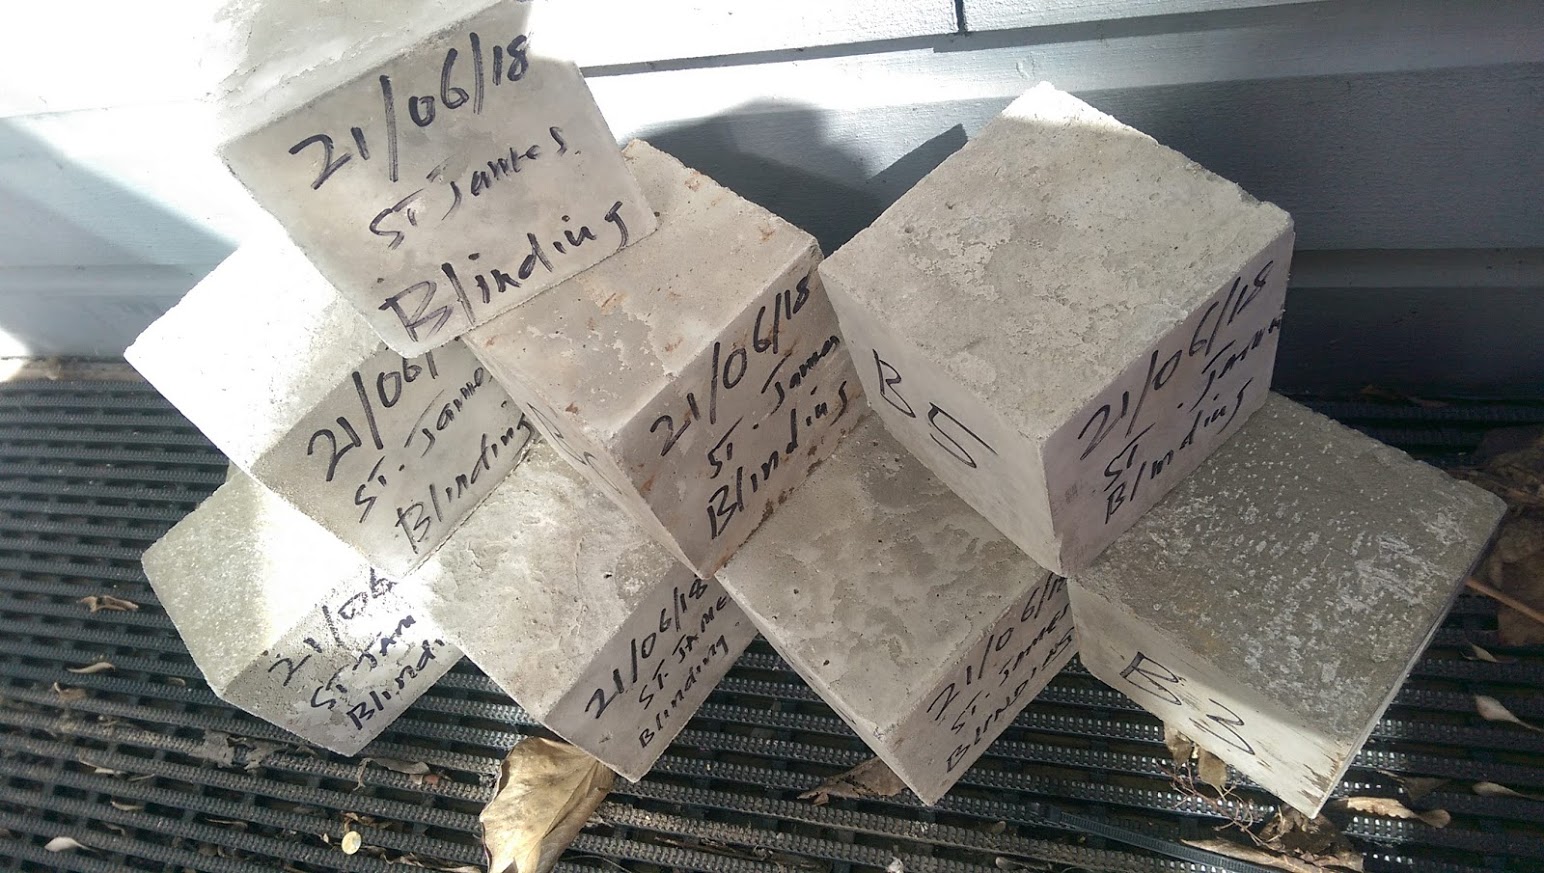 21/06/18
ST James
Blinding
21/06/
ST. Jame
Blinding
21/06/18
ST. James
Blinding
B5
21/06/18
ST. Jame
Blinding
21/06
ST. JAM
Blindi
21/06/18
ST. JAME
Blinding
21/06/18
ST. JAMES
BLINDING
B3